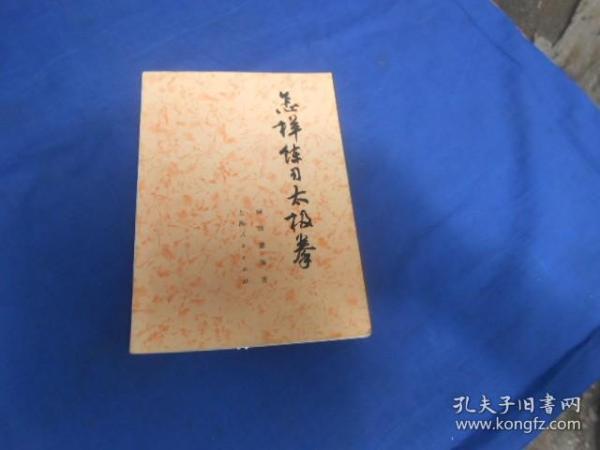 怎样练习太极拳
顾留馨编著
上海人民出版社
孔夫子旧书网
www.kongfz.com